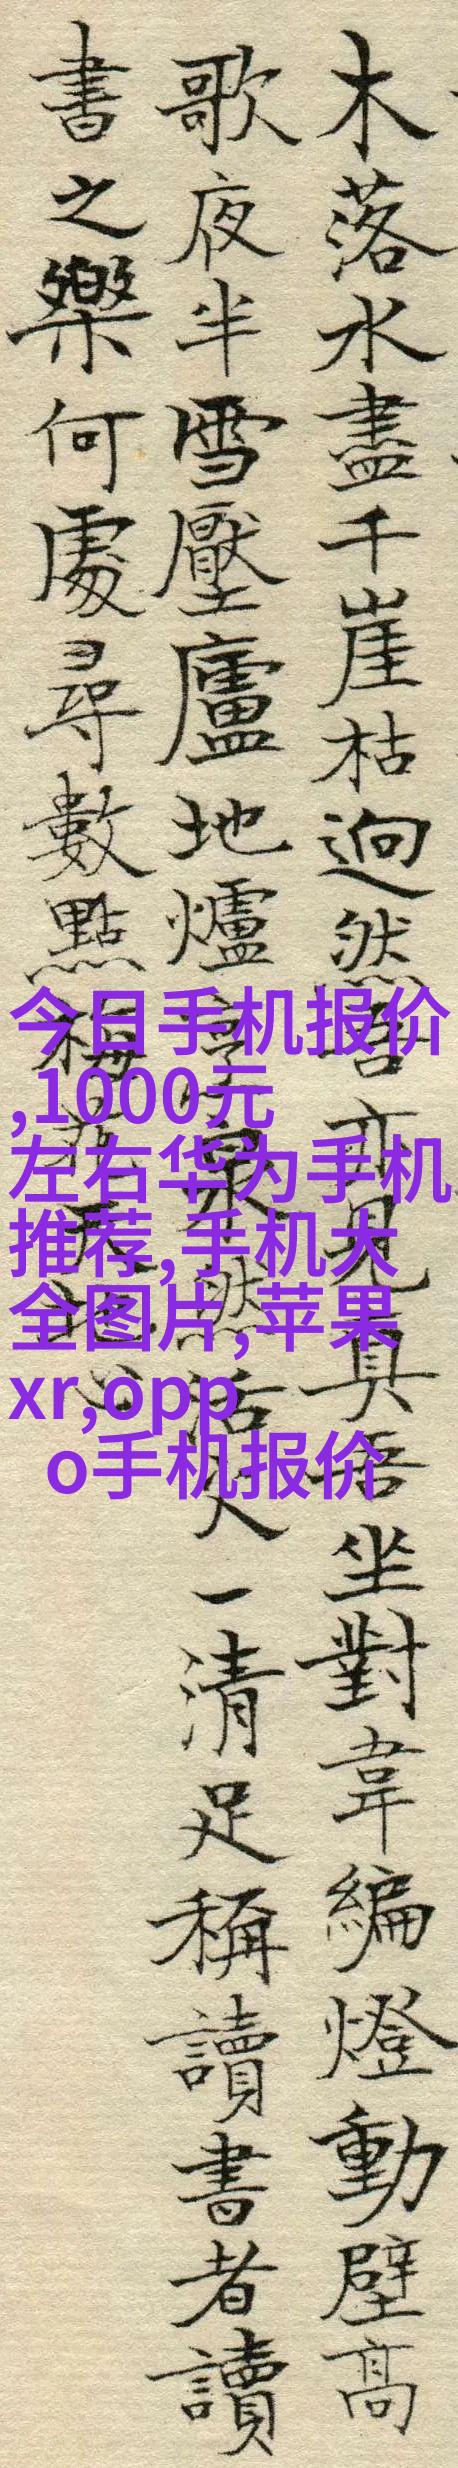 木落水盡千崖枯迥然吾亦見真吾坐對韋編燈動壁高
歌夜半雪壓廬地爐泉然活火一清足稱讀書者讀
書之樂何處尋數點梅花天地心
今日手机报价
,1000元
左右华为手机
推荐,手机大
全图片,苹果
xr,opp
o手机报价